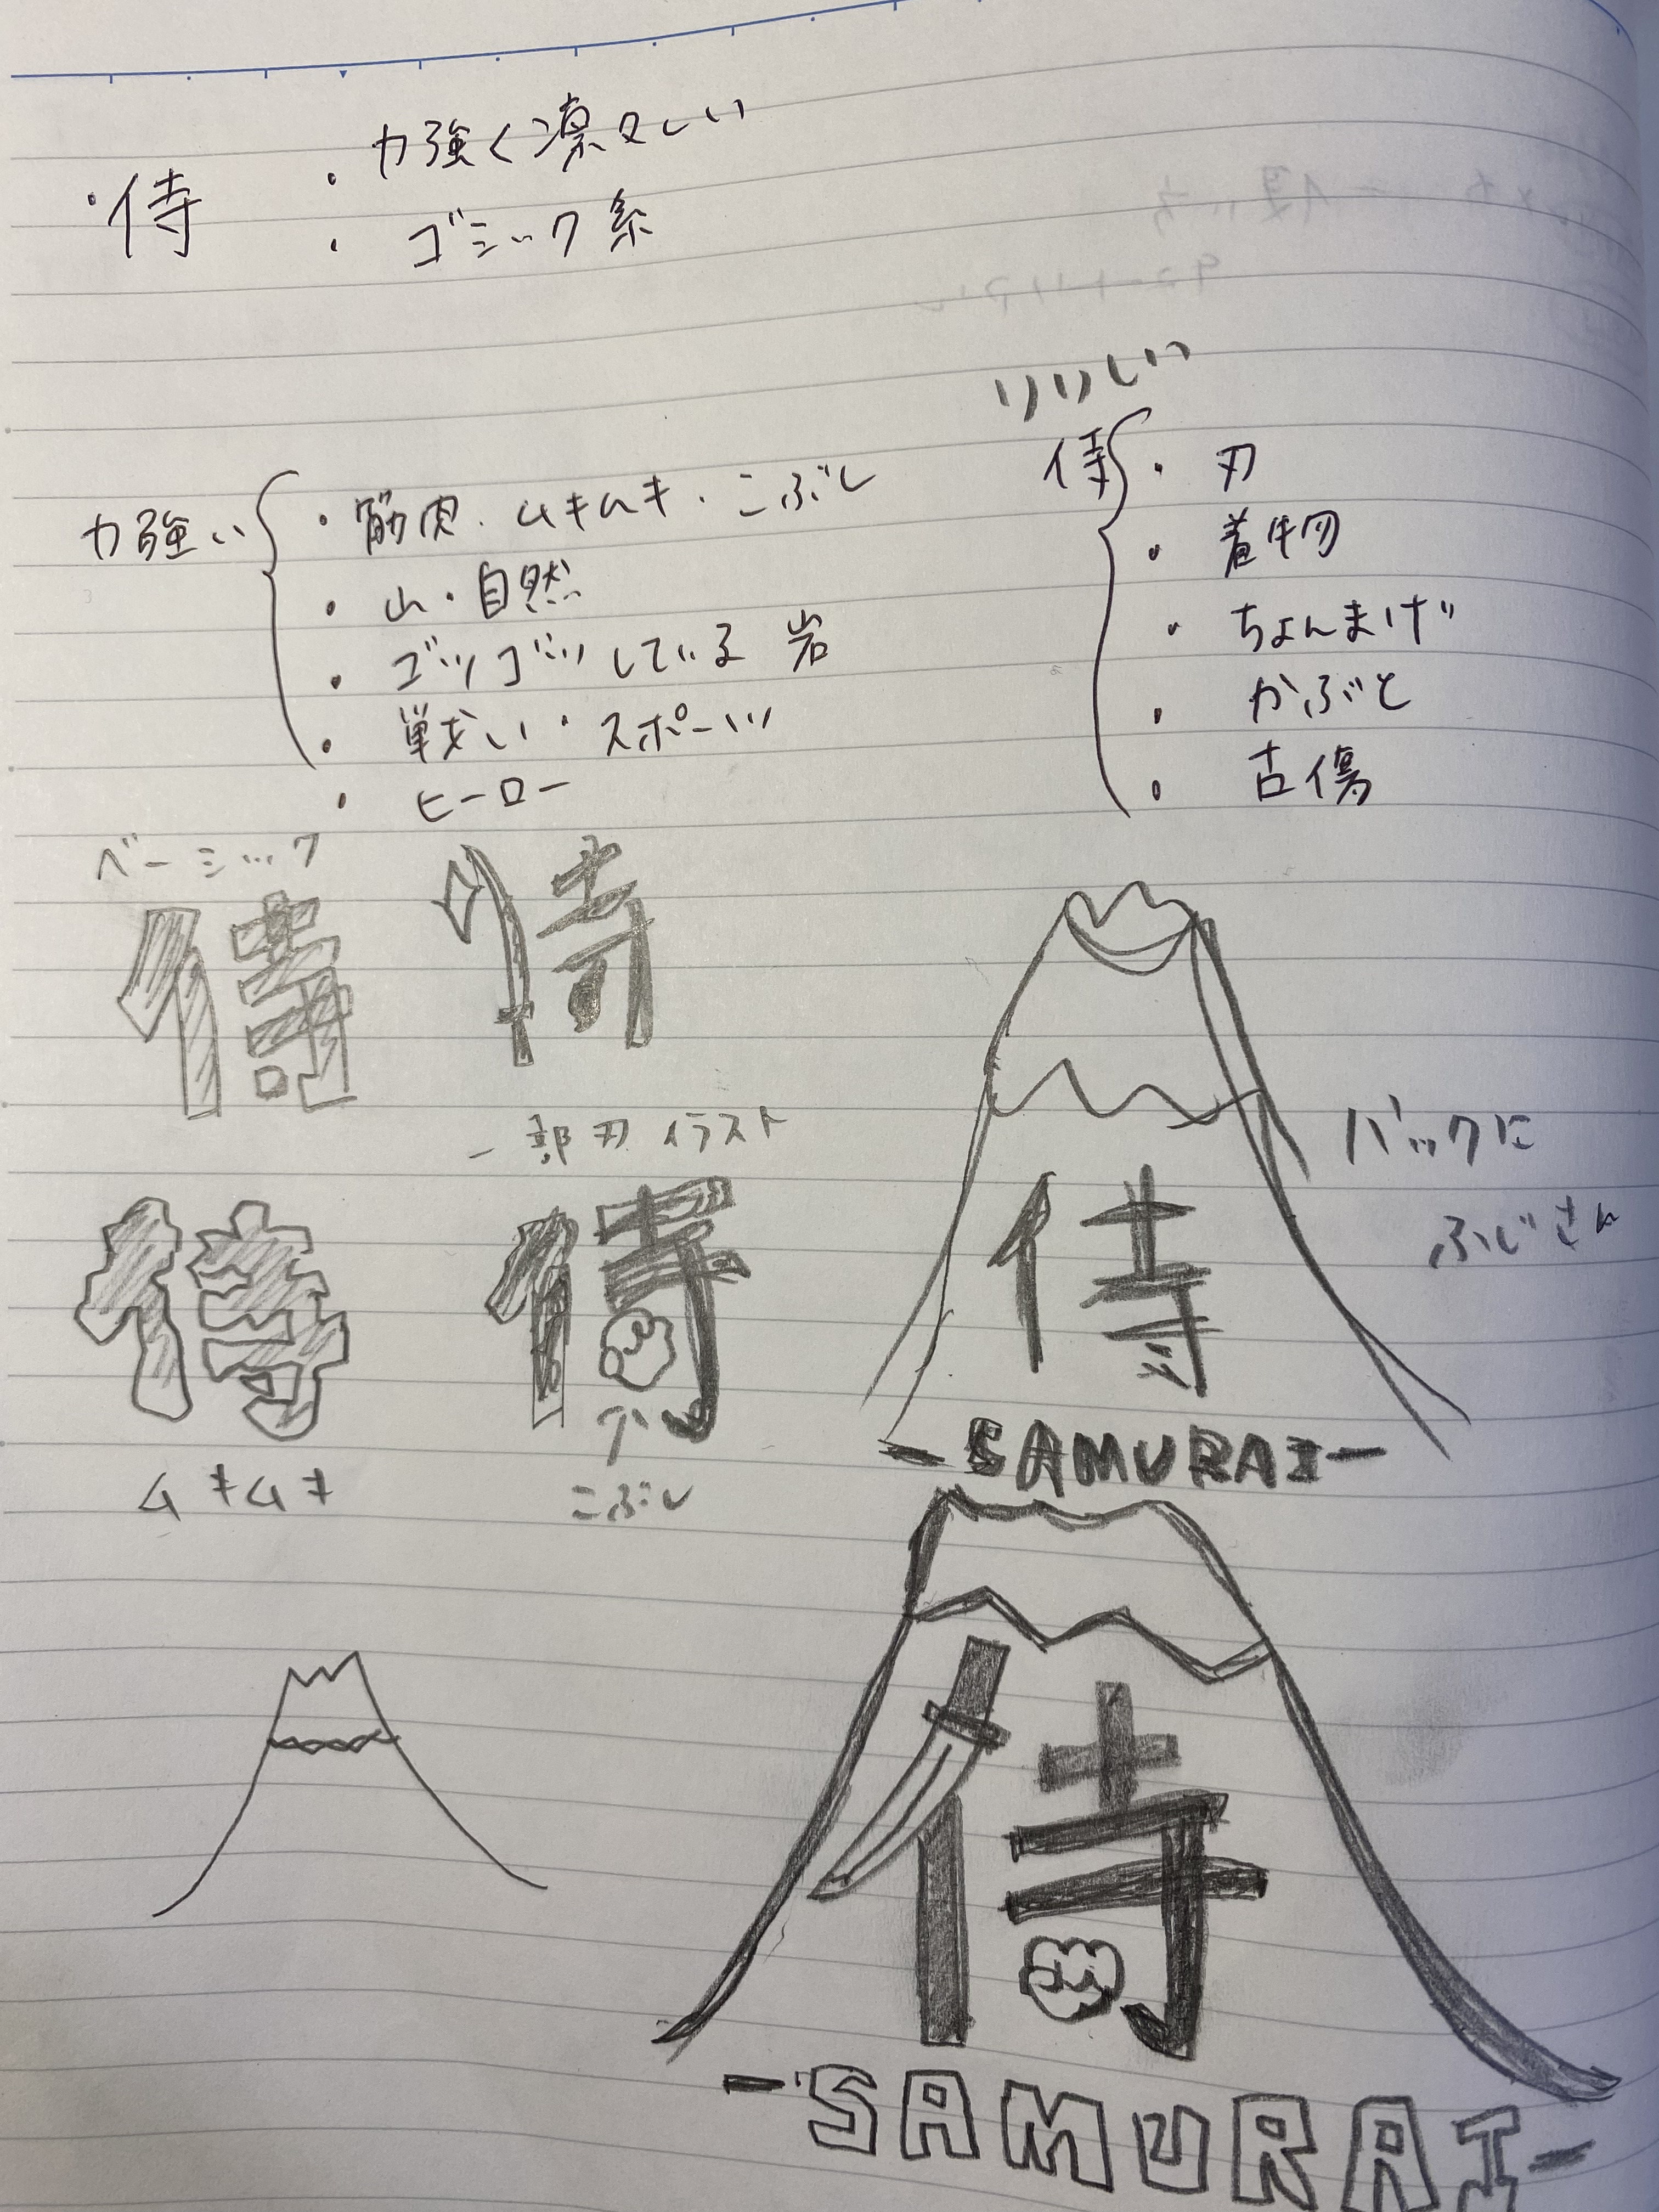 ・侍
・力強く凛々しい
・ゴシック系
力強い
・筋肉・ムキムキ・こぶし
・山・自然
・ゴツゴツしている岩
・戦い・スポーツ
・ヒーロー
りりしい
侍
・刃
・着物
・ちょんまげ
・かぶと
・古傷
ベーシック
侍
侍
一部刃イラスト
侍
ムキムキ
侍
こぶし
バックに
ふじさん
侍
-SAMURAI-
侍
-SAMURAI-